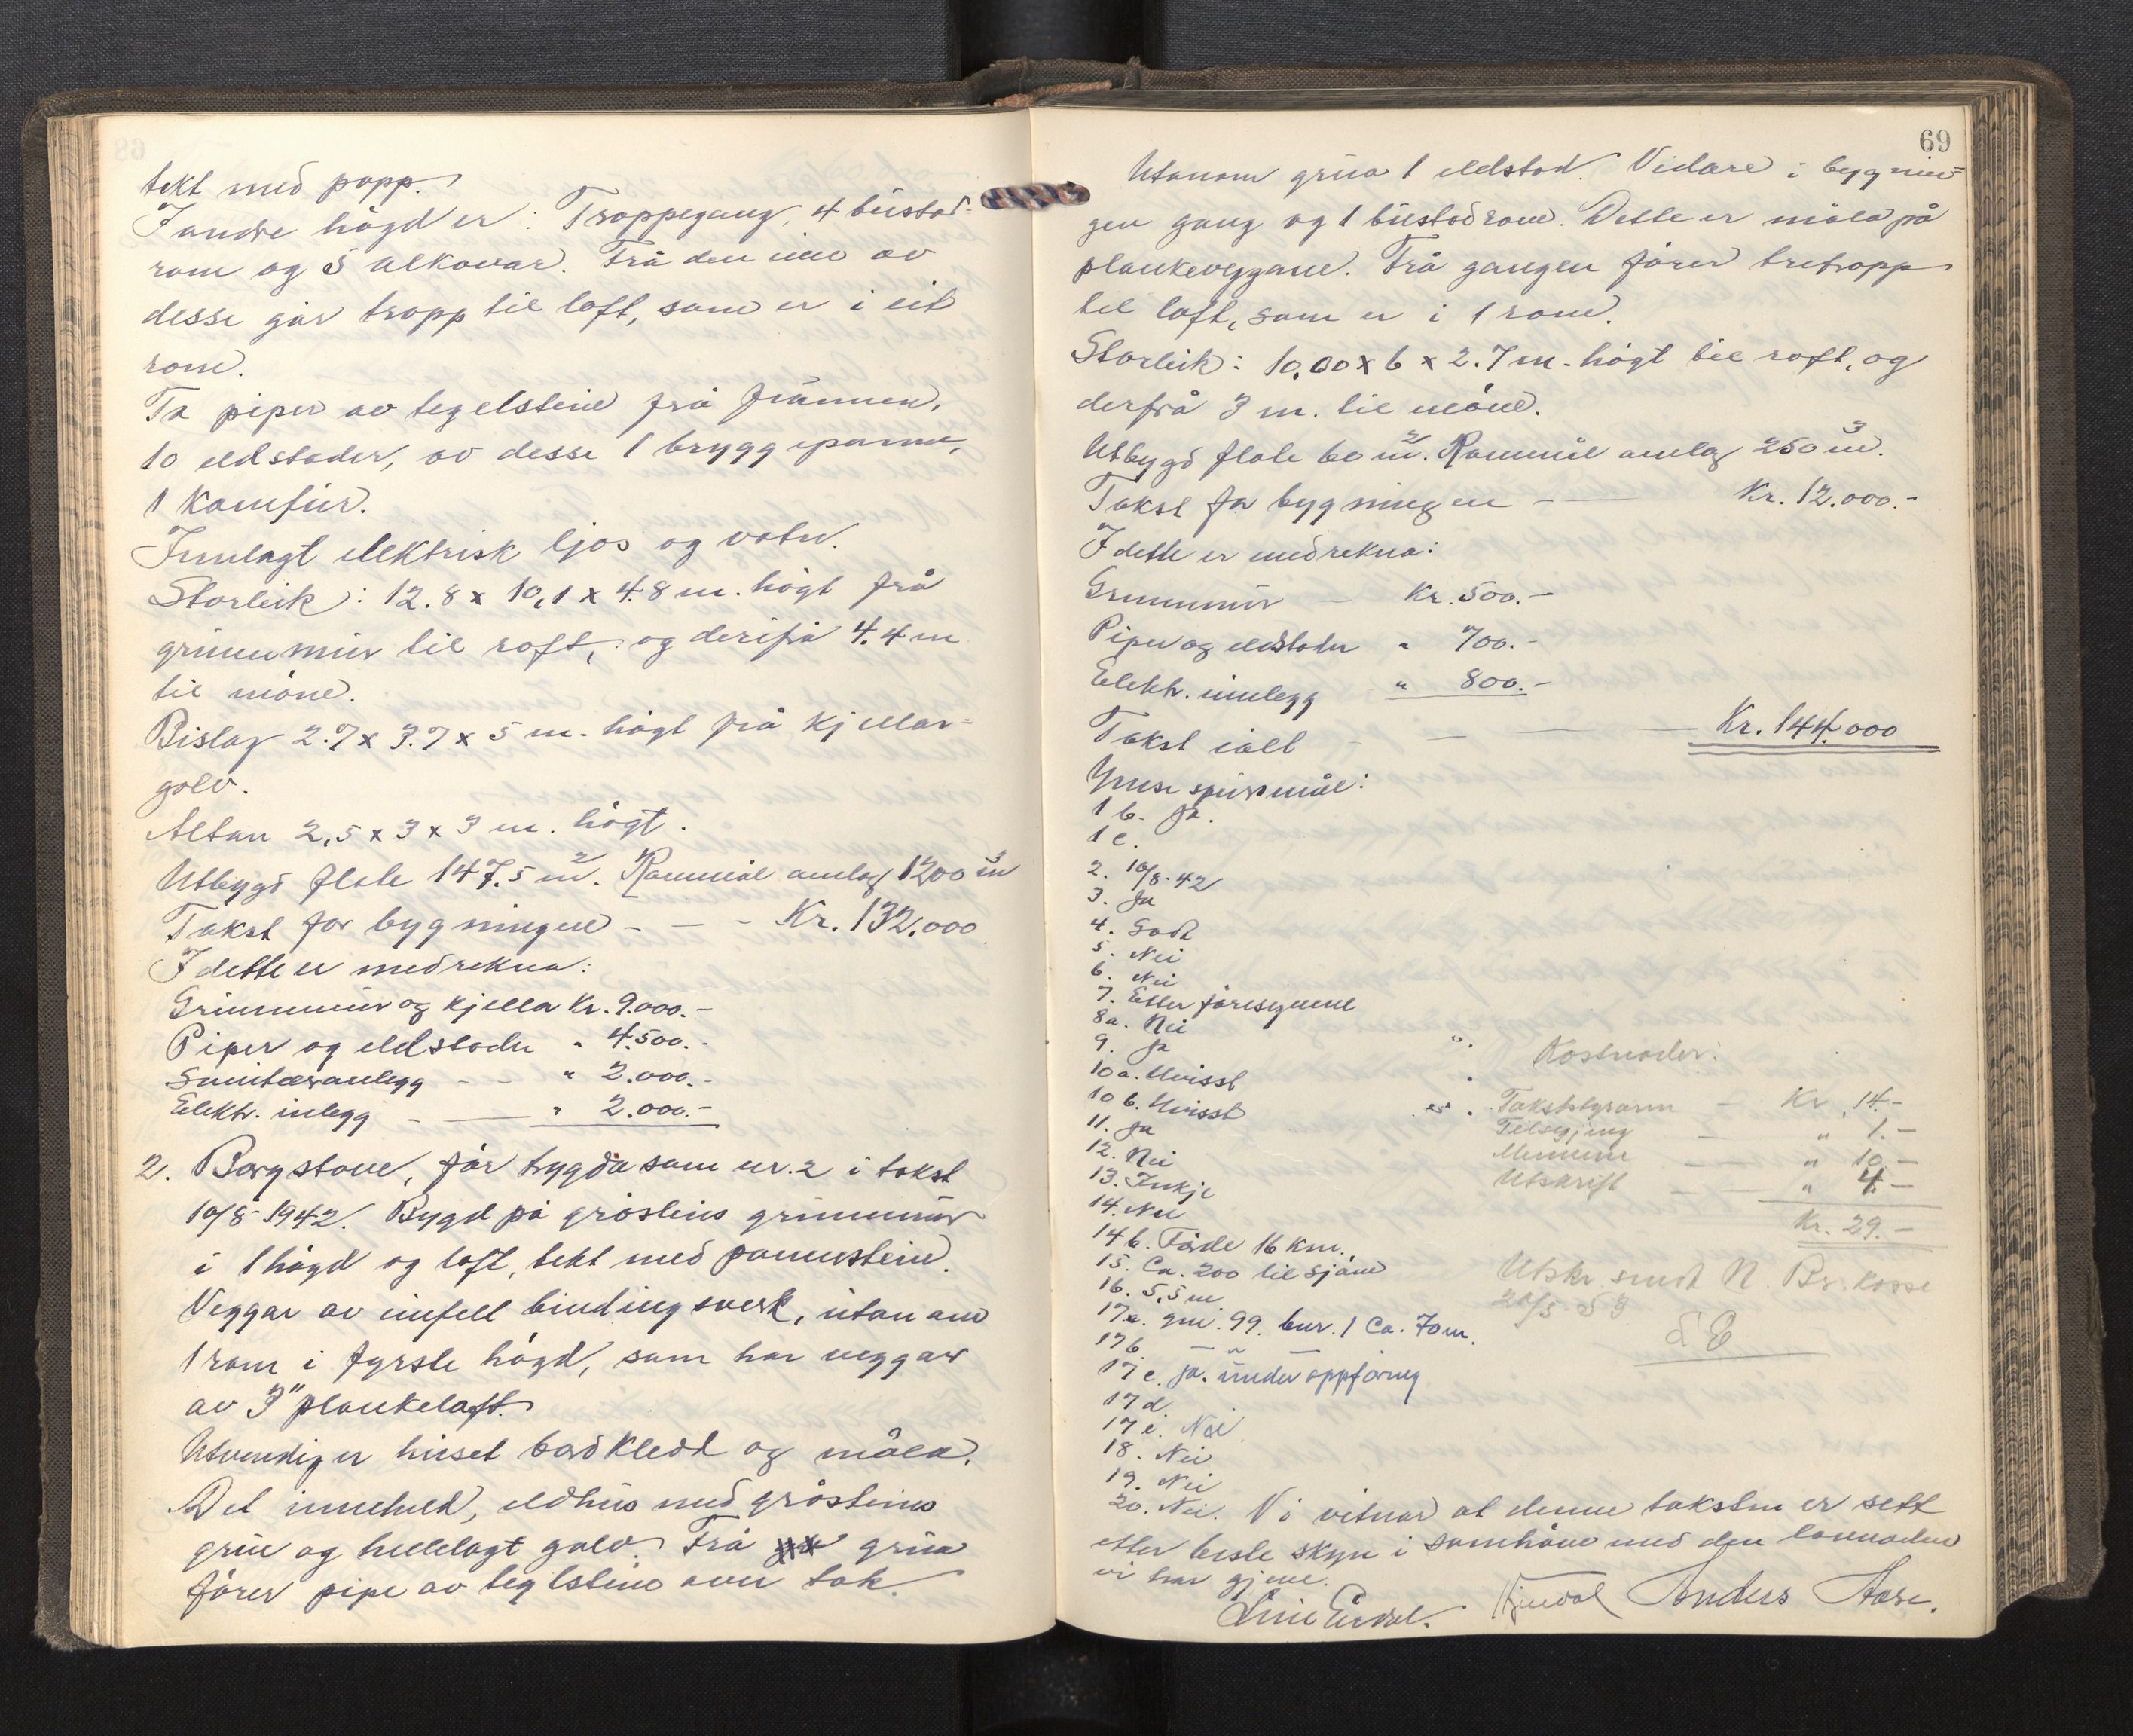 tekt med papp.
I andre høgd er: Trappegang, 4 bustad-
rom og 5 alkovar. Frå den eine av
desse går tropp til loft, som er i eit
rom.
To piper av tegelstein frå grunnen,
10 eldstader, av desse 1 bryggepanne,
1 Komfur.
Innlagt elektrisk ljos og vatn.
Storleik: 12.8 x 10,1 x 4.8 m. høgt frå
grunnmur til raft, og derifrå 4.4 m
til møne.
Bislag 2.7 x 3.7 x 5 m. høgt frå kjellar-
golv.
Altan 2,5 x 3 x 3 m. høgt.
Utbygd flate 147.5 m². Rommål omlag 1200 m³
Takst for bygningen - - - Kr. 132.000
I dette er medrekna:
Grunnmur og kjellar Kr. 9.000.-
Piper og eldstader " 4.500.-
Sanitæranlegg - - " 2.000.-
Elektr. inlegg - — " 2.000.-
2. Borgstove, før trygda som nr. 2 i takst
10/8-1942. Bygd på gråsteins grunnmur
i 1 høgd og loft, tekt med pannestein.
Veggar av einfelt bindingsverk, utan om
1 rom i fyrste høgd, som har veggar
av 3" plankelaft.
Utvendig er huset bordkledt og måla.
Det inneheld, eldhus med gråsteins
grue og hellelagt golv. Frå grua
fører pipe av teglstein over tak.
69
Utanom grua 1 eldstad. Vidare i bygnin=
gen gang og 1 bustadrom. Dette er måla på
plankeveggane. Frå gangen fører tretropp
til loft, som er i 1 rom.
Storleik: 10,00 x 6 x 2.7 m. høgt til raft, og
derfrå 3 m. til møne.
Utbygd flate 60 m². Rommål omlag 250 m³.
Takst for bygningen - — Kr. 12.000.-
I dette er medrekna:
Grunnmur — Kr. 500.-
Piper og eldstader " 700.-
Elektr. innlegg " 800.-
Takst ialt - — — — Kr. 144.000
Ymse spursmål:
1 b. Ja.
1 c.
2. 10/8-42
3. Ja
4. Godt
5. Nei
6. Nei
7. Etter føresegnene
8a. Nei
9. Ja
10a. Uvisst
10 b. Uvisst
11. Ja
12. Nei
13. Inkje
14. Nei
14 b. Førde 16 km.
15. Ca. 200 til sjøen
16. 5,5 m
17a. gnr. 99. bnr. 1 Ca. 70 m.
17b. — " —
17 c. Ja. under oppføring
17 d
17 e. Nei
18. Nei
19. Nei
20. Nei. Vi vitnar at denne taksten er sett
etter beste skyn i samhøve med den lovnaden
vi har gjeve.
Kostnader:
Takststyrarm — Kr. 14.-
Tilsegjing — " 1.-
Mennene — " 10.-
Utskrift — " 4.-
Kr. 29.-
Utskr. sendt N. Br.kasse
20/5-53
Anders Aase.